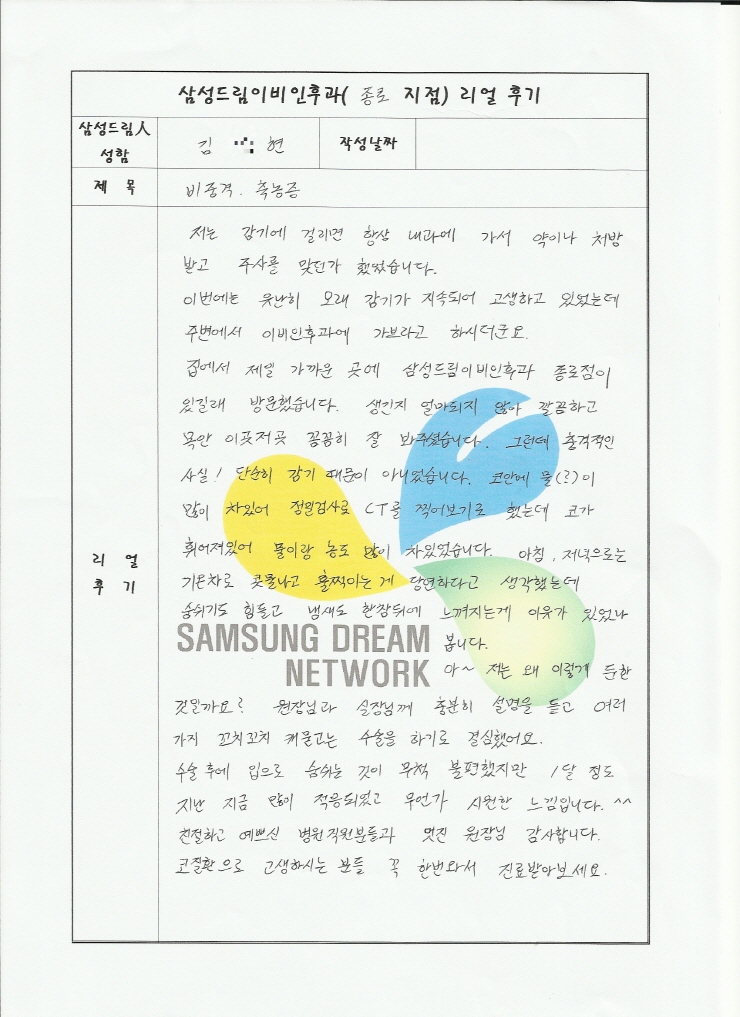 삼성드림이비인후과( 종로 지점) 리얼 후기
삼성드림人
성함
김 현
작성날짜
제 목
비중격. 축농증
리 얼
후 기
저는 감기에 걸리면 항상 내과에 가서 약이나 처방
받고 주사를 맞던가 했었습니다.
이번에는 유난히 오래 감기가 지속되어 고생하고 있었는데
주변에서 이비인후과에 가보라고 하시더군요.
집에서 제일 가까운 곳에 삼성드림이비인후과 종로점이
있길래 방문했습니다. 생긴지 얼마되지 않아 깔끔하고
목안 이곳저곳 꼼꼼히 잘 봐주셨습니다. 그런데 충격적인
사실! 단순히 감기 때문이 아니었습니다. 코안에 물(?)이
많이 차있어 정밀검사로 CT를 찍어보기로 했는데 코가
휘어져있어 물이랑 농도 많이 차있었습니다. 아침, 저녁으로는
기온차로 콧물나고 훌쩍이는 게 당연하다고 생각했는데
숨쉬기도 힘들고 냄새도 한참뒤에 느껴지는게 이유가 있었나
봅니다.
SAMSUNG DREAM
NETWORK
아~ 저는 왜 이렇게 둔한
것일까요? 원장님과 실장님께 충분히 설명을 듣고 여러
가지 꼬치꼬치 캐묻고는 수술을 하기로 결심했어요.
수술 후에 입으로 숨쉬는 것이 무척 불편했지만 1달 정도
지난 지금 많이 적응되었고 무언가 시원한 느낌입니다. ^^
친절하고 예쁘신 병원직원분들과 멋진 원장님 감사합니다.
코질환으로 고생하시는 분들 꼭 한번와서 진료받아보세요.